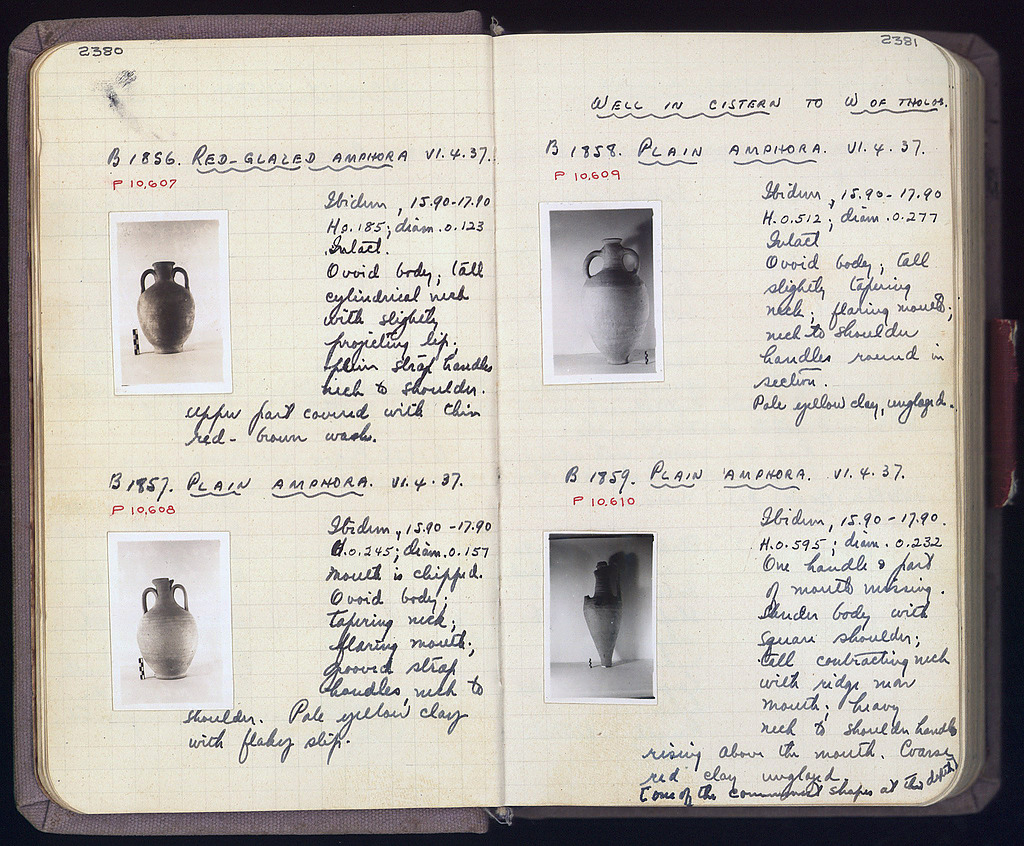 2380
B 1856. RED-GLAZED AMPHORA VI.4.37.
P 10,607
Ibidum, 15.90-17.90
H 0.185; diam. 0.123
Intact.
Ovoid body; tall
cylindrical neck
with slightly
projecting lip.
Plain strap handles
neck to shoulder.
upper part covered with thin
red-brown wash.
B 1857. PLAIN AMPHORA. VI.4.37.
P 10,608
Ibidum, 15.90-17.90
H.0.245; diam. 0.157
Mouth is chipped.
Ovoid body;
tapering neck;
flaring mouth;
grooved strap
handles, neck to
shoulder. Pale yellow clay
with flaky slip.
2381
WELL IN CISTERN TO W OF THOLOS.
B 1858. PLAIN AMPHORA. VI.4.37.
P 10,609
Ibidum, 15.90-17.90
H.0.512; diam. 0.277
Intact
Ovoid body; tall
slightly tapering
neck; flaring mouth;
neck to shoulder
handles round in
section.
Pale yellow clay, unglazed.
B 1859. PLAIN AMPHORA. VI.4.37.
P 10,610
Ibidum, 15.90-17.90.
H.0.595; diam. 0.232
One handle & part
of mouth missing.
Slender body with
square shoulder;
tall contracting neck
with ridge near
mouth; heavy
neck to shoulder handles
rising above the mouth. Coarse
red clay unglazed.
(one of the commonest shapes at this depth)